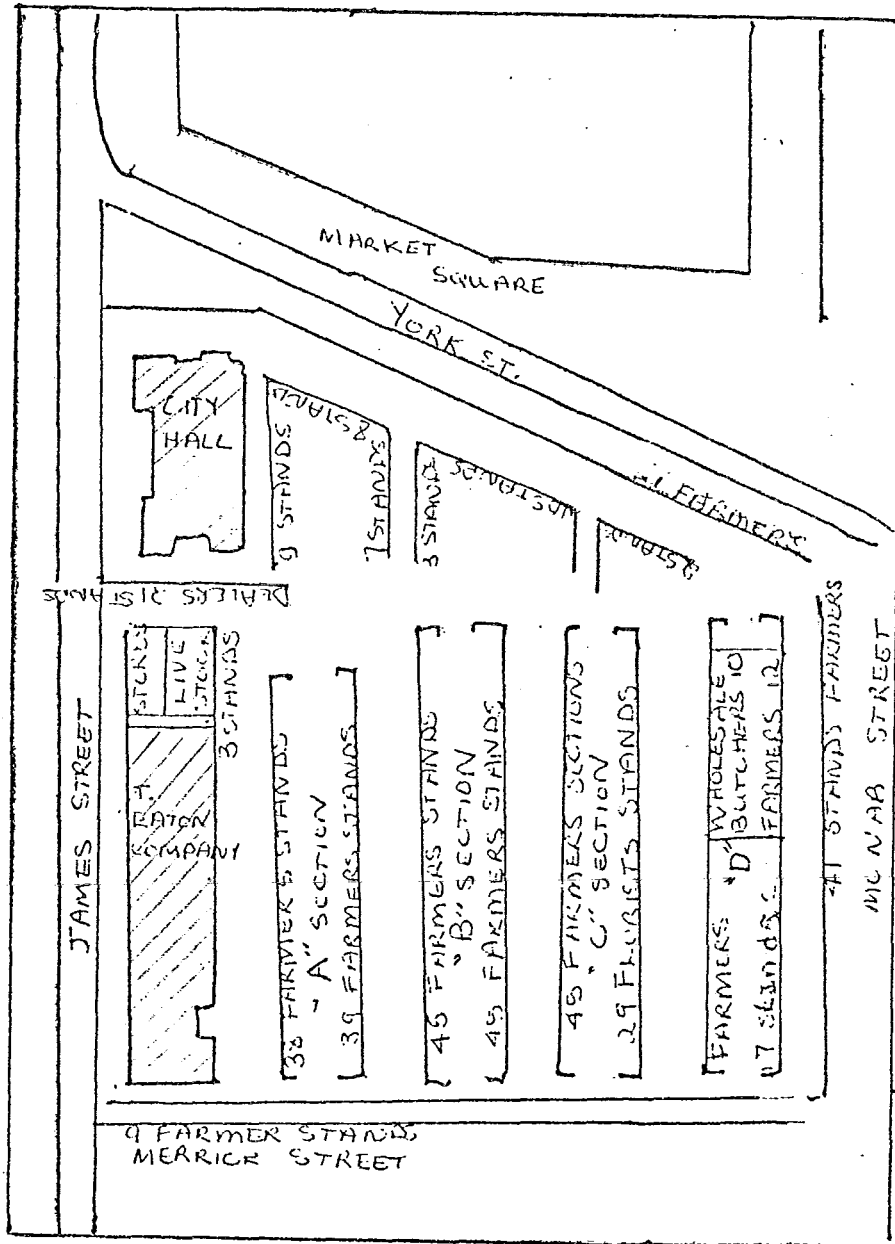 MARKET
SQUARE
YORK ST.
CITY
HALL
8 STAND
9 STANDS
7 STANDS
3 STANDS
STANDS
FARMERY
STAND
DEALERS 21 STANDS
STORES
LIVE
STOCK
3 STANDS
T.
EATON
COMPANY
JAMES STREET
38 FARMERS STANDS
"A" SECTION
39 FARMERS STANDS
45 FARMERS STANDS
"B" SECTION
45 FARMERS STANDS
45 FARMERS SECTIONS
"C" SECTION
29 FLORISTS STANDS
FARMERS "D" WHOLESALE
BUTCHERS 10
17 STANDS
FARMERS 12
41 STANDS FARMERS
MCNAB STREET
9 FARMER STANDS
MERRICK STREET